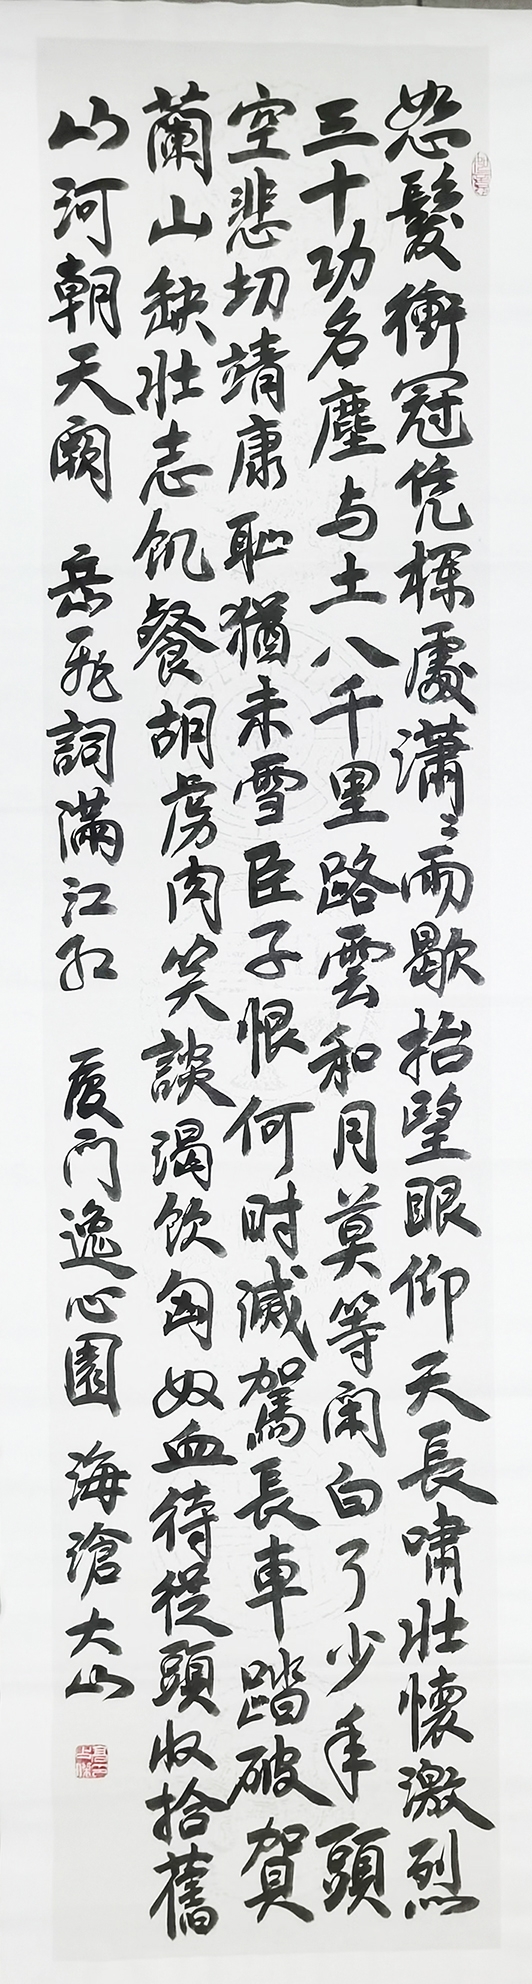 怒髮衝冠凭楝處潇〻雨歇抬望眼仰天長啸壯懷激烈
三十功名塵与土八千里路雲和月莫等闲白了少年頭
空悲切靖康恥猶未雪臣子恨何时滅駕長車踏破賀
蘭山缺壯志飢餐胡虜肉笑談渴飲匈奴血待從頭收拾舊
山河朝天阙 岳飛詞滿江紅 厦门逸心園 海滄大山